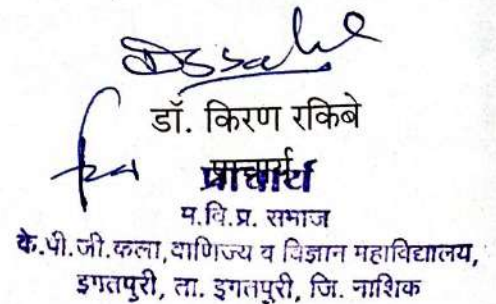 डॉ. किरण रकिबे
प्राचार्य
म.वि.प्र. समाज
के.पी.जी.कला,वाणिज्य व विज्ञान महाविद्यालय,
इगतपुरी, ता. इगतपुरी, जि. नाशिक